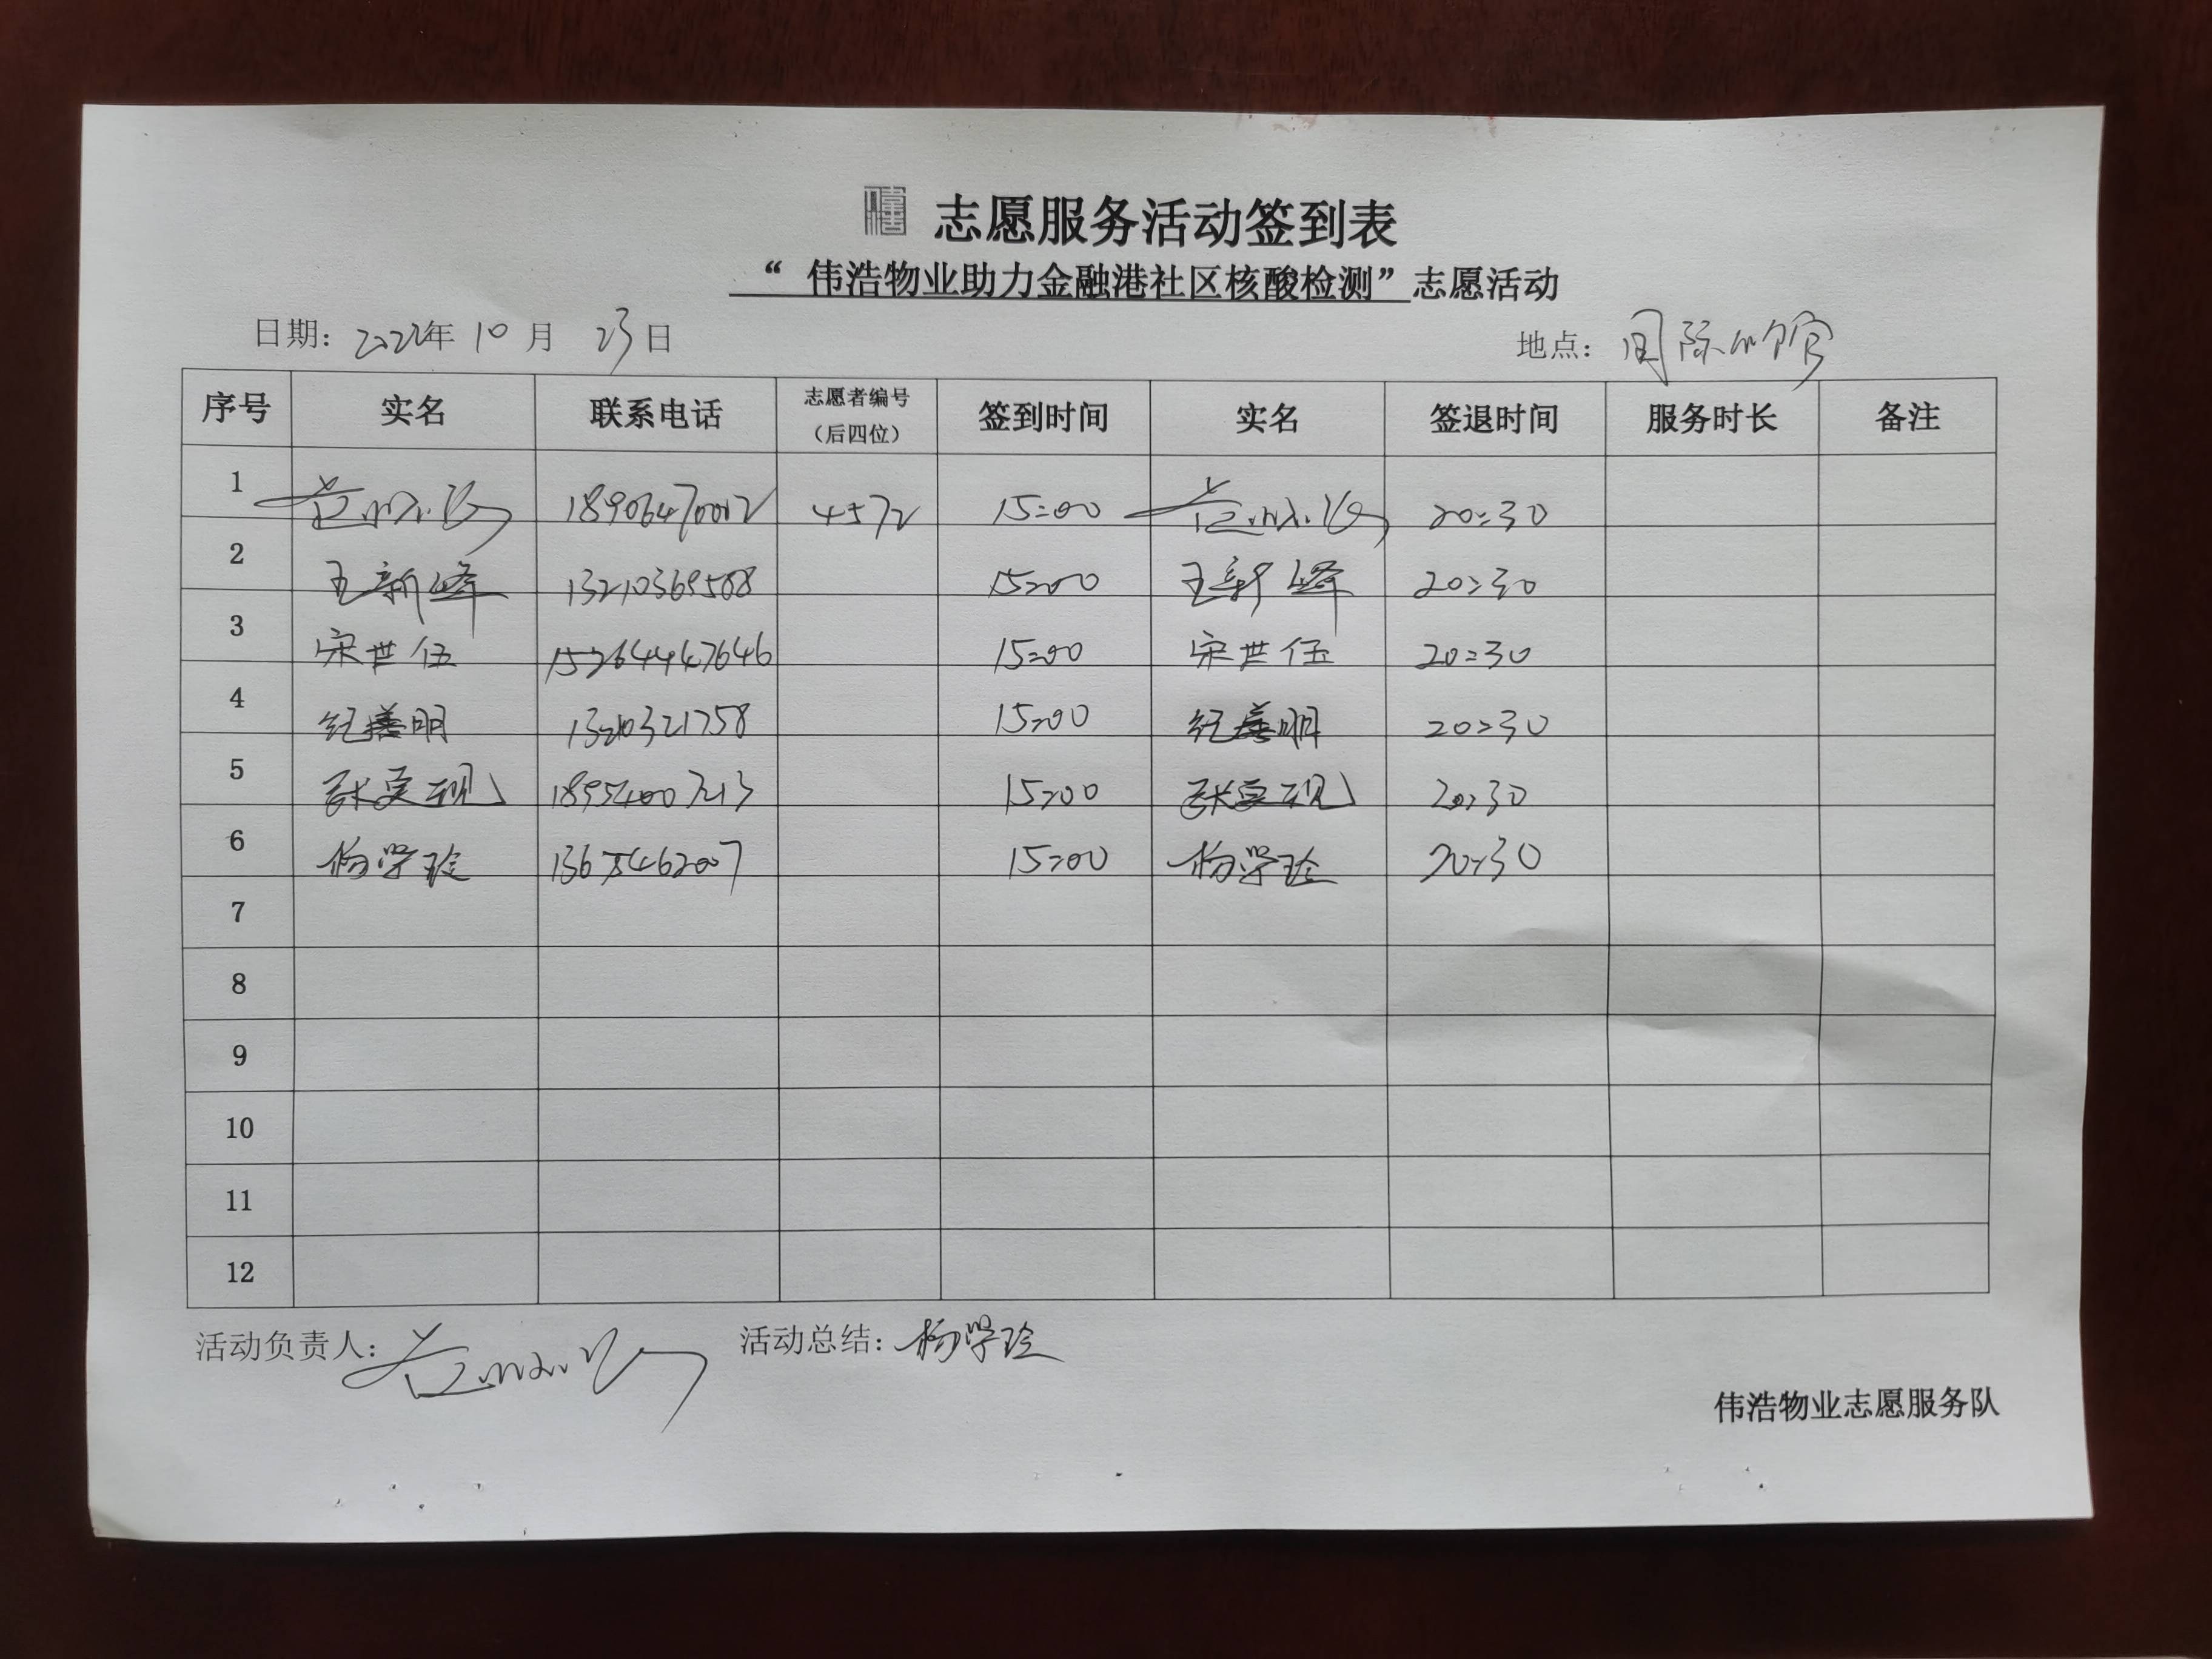 志愿服务活动签到表
“ 伟浩物业助力金融港社区核酸检测”志愿活动
日期: 2022年 10 月 23日 地点: 国际
序号 实名 联系电话 志愿者编号（后四位） 签到时间 实名 签退时间 服务时长 备注
1 18906470012 4572 15:00 20:30
2 王新峰 13210369588 15:00 王新峰 20:30
3 宋世伍 15264447646 15:00 宋世伍 20:30
4 纪善明 13210321758 15:00 纪善明 20:30
5 15:00 20:30
6 杨学玲 15:00 杨学玲 20:30
7
8
9
10
11
12
活动负责人: 活动总结: 杨学玲
伟浩物业志愿服务队